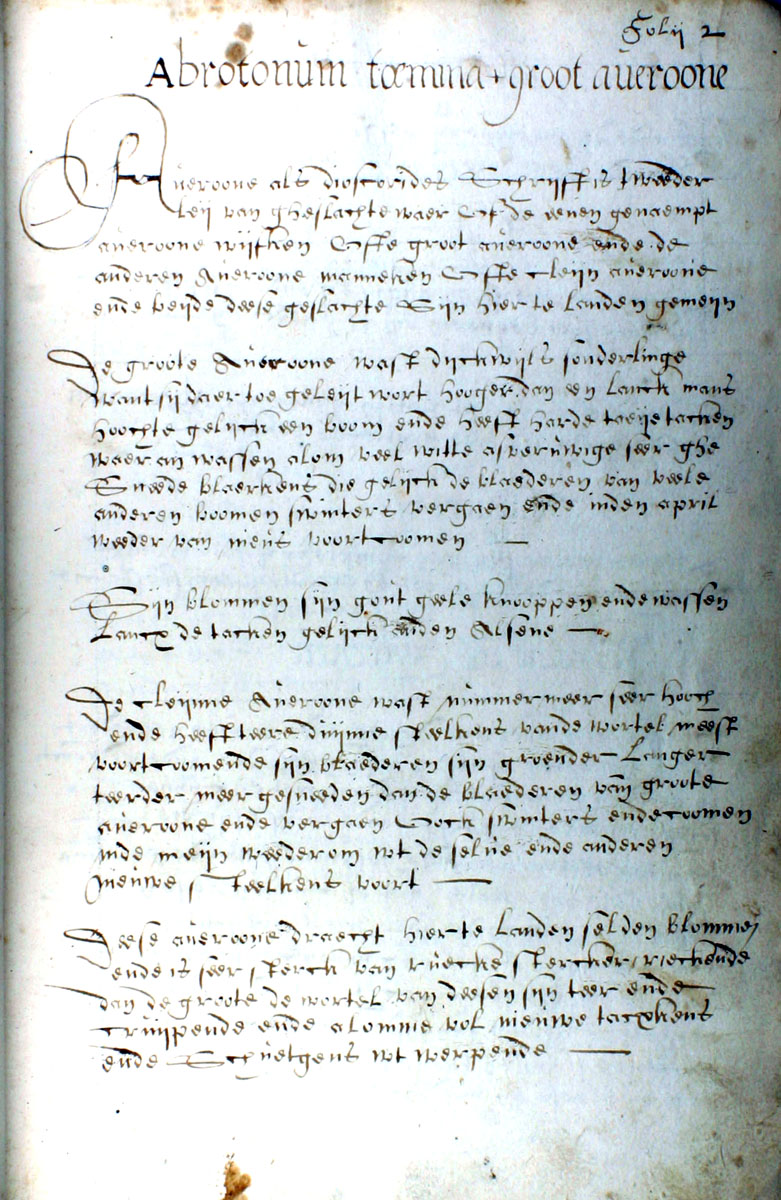 Folij 2
Abrotonum fœmina + groot averoone
Averoone als dioscorides Schrijft is tweeder
leij van gheslachte waer Of de eenen genaempt
averoone wijfken Ofte groot averoone ende de
anderen Averoone manneken Ofte cleijn averoone
ende beijde deese geslachte Sijn hier te landen gemeijn
De groote Averoone wast dijckwijls sonderlinge
want sij daer toe geleijt wort hooger dan een lanck mans
hoochte gelijck een boom ende heeft harde taeije tacken
waer an wassen alom veel witte asveruwige seer ghe
Sneede blaerkens die gelijck de blaederen van veele
anderen boomen swinters vergaen ende inden april
weeder van nieus voortcoomen
Sijn blommen sijn gout geele knooppen ende wassen
Lancx de tacken gelijck anden Alsene
De cleijnne Averoone wast nummermeer seer hooch
ende heeft teere dunne steelkens vande wortel meest
voortcoomende sijn blaederen sijn groender Langer
teerder meer gesneeden dan de blaederen van groote
averoone ende vergaen Oock swinters ende coomen
inde meijn weederom wt de selve ende anderen
nieuwe steelkens voort
Deese averoone draecht hier te landen selden blommen
ende is seer sterck van ruecke stercker rieckende
dan de groote de wortel van deesen sijn teer ende
cruijpende ende alomme vol nieuwe tacxkens
ende Schuetgens wt werpende